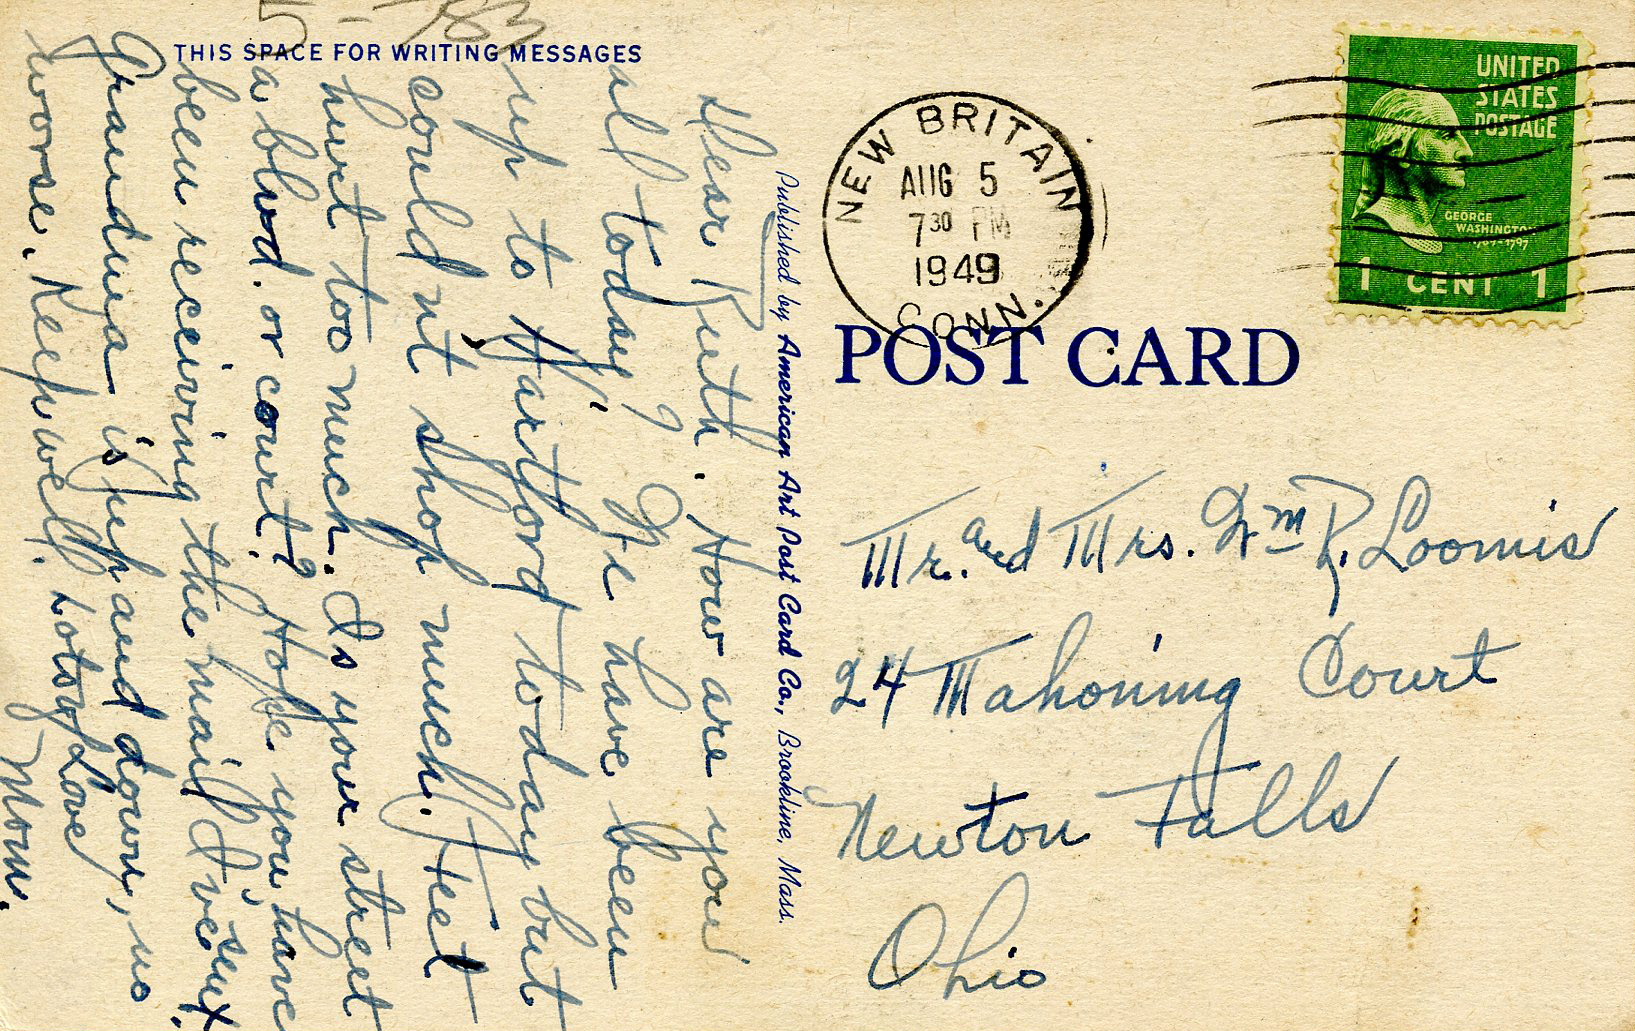 THIS SPACE FOR WRITING MESSAGES
Dear Ruth. How are you
all today? We have been
up to Hartford today but
could n't shop much. Feet
hurt too much. Is your street
a blvd. or court? Hope you have
been receiving the mail I've sent.
Grandma is up and down, no
worse. Keep well. Lots of Love
Mom.
Published by American Art Post Card Co., Brookline, Mass.
NEW BRITAIN
AUG 5
7 30 PM
1949
CONN.
UNITED
STATES
POSTAGE
GEORGE
WASHINGTON
1789-1797
1 CENT 1
POST CARD
Mr. and Mrs. Wm R. Loomis
24 Mahoning Court
Newton Falls
Ohio